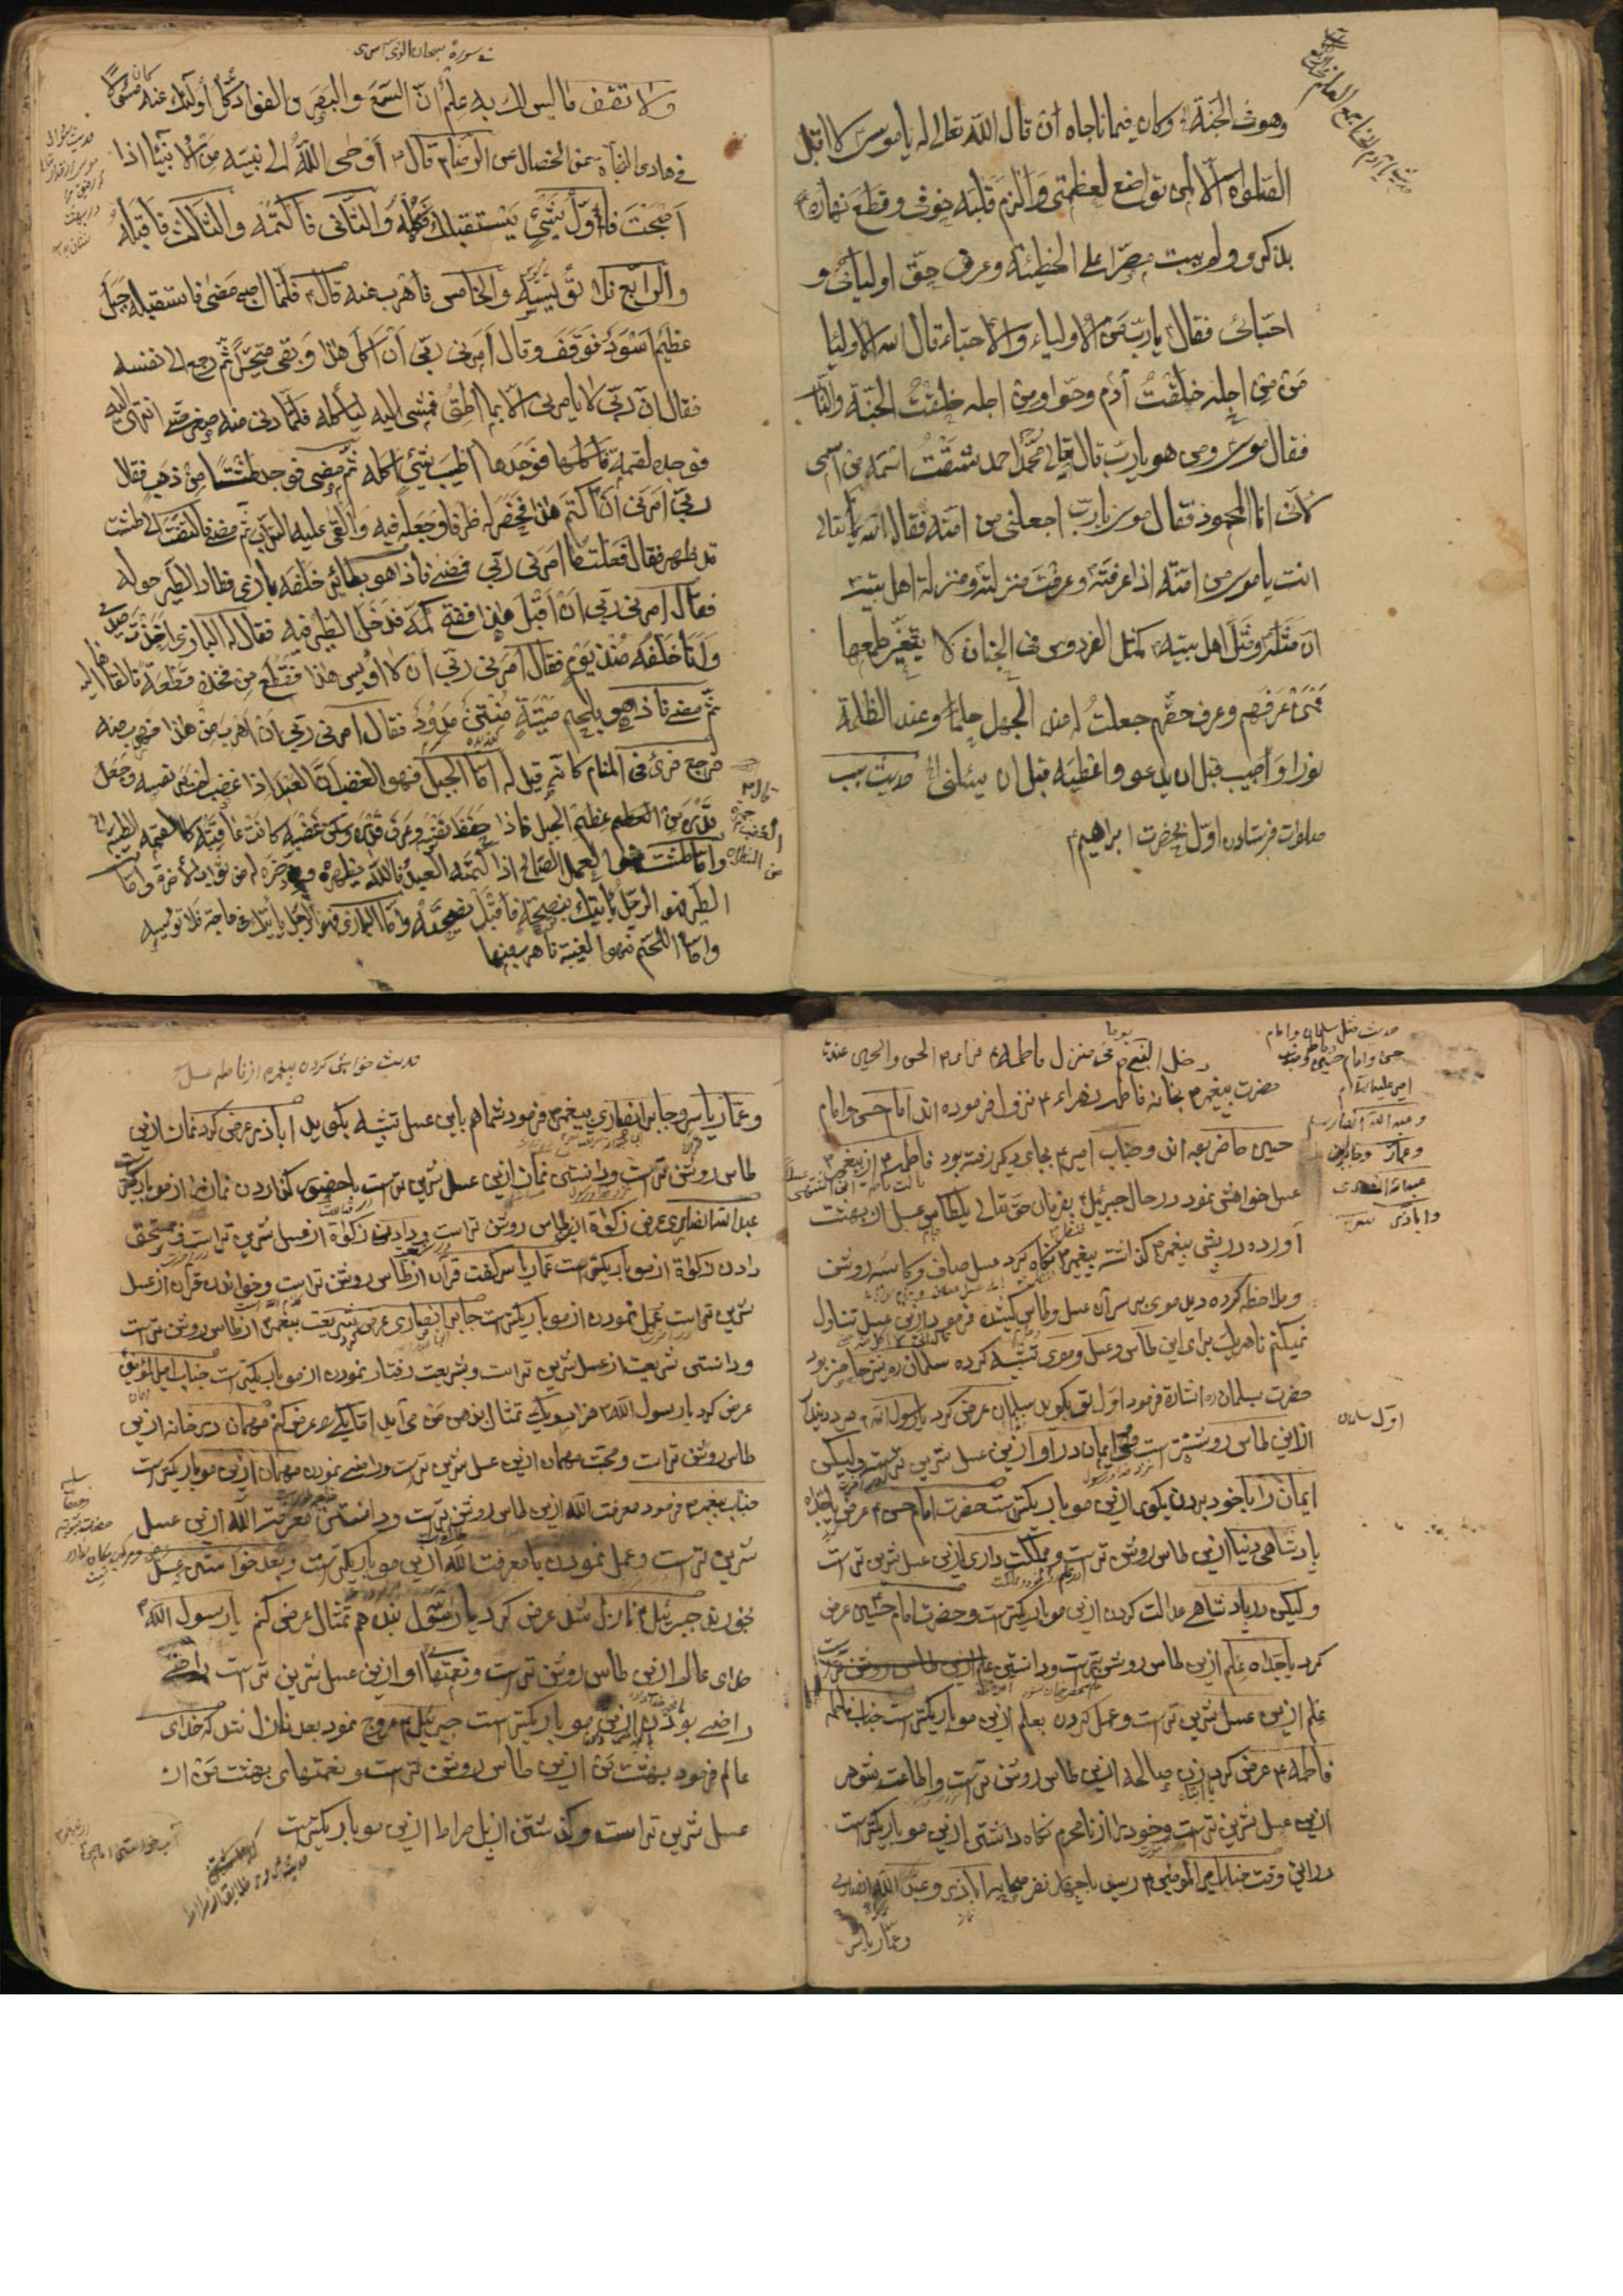 وهو في الجنة وكان فيما ناجاه ان قال الله تعالى له يا موسى لا اقبل
الصلوة الا لمن تواضع لعظمتي والزم قلبه خوفي وقطع نهاره
بذكرى ولم يبت مصرا على الخطيئة وعرف حق اوليائى و
احبائى فقال يا رب من الاولياء والاحباء قال الاوليا
من من اجله خلقت آدم وحوا ومن اجله خلقت الجنة والنار
فقال موسى ومن هو يا رب قال تعالى محمد احمد شققت اسمه من اسمى
لانى انا المحمود فقال موسى يا رب اجعلنى من امته فقال الله تعالى
انت يا موسى من امته اذا عرفته وعرفت منزلته ومنزلة اهل بيته
ان مثله ومثل اهل بيته كمثل الفردوس فى الجنان لا يتغير طعمها
فمن عرفهم وعرف حقهم جعلت له عند الجهل حلما وعند الظلمة
نورا واجيب قبل ان يدعو واعطيه قبل ان يسئلنى حديث سبب
صلوات فرستادن اول بحضرت ابراهيم
فى سورة سبحان الذى اسرى
ولا تقف ما ليس لك به علم ان السمع والبصر والفؤاد كل اولئك كان عنه مسئولا
فى هادى النجاة عن الخصال عن الرضا قال اوحى الله الى نبيه من الانبيا اذا
اصبحت فاول شئ يستقبلك فكله والثانى فاكتمه والثالث فاقبله
والرابع فلا تؤيسه والخامس فاهرب عنه قال فلما اصبح مضى فاستقبله جبل
عظيم اسود فوقف وقال امرنى ربى ان اكل هذا وبقى متحيرا ثم رجع الى نفسه
فقال ان ربى لا يامرنى الا بما اطيق فمشى اليه لياكله فلما دنى منه صغر حتى انتهى اليه
فوجده لقمة فاكلها فوجدها اطيب شئ اكله ثم مضى فوجد طشتا من ذهب فقال
ربى امرنى ان اكتم هذا فحفر له ظرفا وجعله فيه والقى عليه التراب ثم مضى فالتفت الى طشت
قد ظهر فقال فعلت ما امرنى ربى فمضى فاذا هو بطائر خلفه بازى فطار الطير حوله
فقال امرنى ربى ان اقبل هذا ففتح كمه فدخل الطير فيه فقال له البازى اخذت صيدى
وانا خلفه منذ يوم فقال امرنى ربى ان لا اويس هذا فقطع من فخذه قطعة فالقاها اليه
ثم مضى فاذا هو بلحم ميتة منتن مدود فقال امرنى ربى ان اهرب من هذا فهرب منه
فرجع فرئ فى المنام كانه قيل له اما الجبل فهو الغضب ان العبد اذا غضب لم ير نفسه وجهل
قدره من عظم الغضب فاذا حفظ نفسه وعرف قدره وسكن غضبه كانت عاقبته كاللقمة الطيبة
واما طشت فهو العمل الصالح اذا كتمه العبد
الطير فهو الرجل ياتيك بنصيحة فاقبل نصيحته واما البازى فهو الرجل ياتيك فى حاجة فلا تويسه
واما اللحم فهو الغيبة فاهرب عنها
دخل النبى يوما فى منزل فاطمة
حضرت پيغمبر بخانه فاطمه زهراء نزول فرموده اند امام حسن و امام
حسين حاضر بوده اند و جناب امير بجاى ديگر رفته بود فاطمه از پيغمبر
عسل خواهش نمود در حال جبرئيل بفرمان حق تعالى يك طاس عسل از بهشت
آورده در پيش پيغمبر گذاشته پيغمبر نگاه كرد عسل صاف و كاسه روشن
و ملاحظه كرده ديد موى بر سر آن عسل و طاس كشيده فرمود ازين عسل تناول
نميكنم تا هر يك براى اين طاس و عسل و موى تشبيه كرده سلمان نيز حاضر بود
حضرت بسلمان اشاره فرمود اول تو بگوى سلمان عرض كرد يا رسول الله
ازين طاس روشنتر است ايمان در او ازين عسل شيرين تر است و ليكن
ايمان را با خود بردن بگور ازين مو باريكتر است حضرت امام حسن عرض
پادشاهى دنيا ازين طاس روشن تر است و مملكت دارى ازين عسل شيرين تر است
و ليكن در پادشاهى عدالت كردن ازين مو باريكتر است و حضرت امام حسين عرض
كرد يا جداه علم ازين طاس روشن تر است و دانستن
علم ازين عسل شيرين تر است و عمل كردن بعلم ازين مو باريكتر است جناب فاطمه
فاطمه عرض كرد زن صالحه ازين طاس روشن تر است و اطاعت شوهر
ازين عسل شيرين تر است و خود را از نامحرم نگاه داشتن ازين مو باريكتر است
در اين وقت جناب امير المومنين رسيد با چهار نفر صحابه اباذر و عبد الله انصارى
و عمار ياسر
اول سلمان
حديث خواهش كردن پيغمبر از فاطمه عسل
و عمار ياسر و جابر انصارى پيغمبر فرمود شما هم باين عسل تشبيه بگوييد اباذر عرض كرد نماز ازين
طاس روشن تر است و دانستن نماز ازين عسل شيرين تر است با حضور گذاردن نماز را از مو باريكتر
عبد الله انصارى عرض زكوة ازين طاس روشن تر است و دادن زكوة از عسل شيرين تر است بمستحق
دادن زكوة از مو باريكتر است عمار ياسر گفت قرآن ازين طاس روشن تر است و خواندن قرآن از عسل
شيرين تر است عمل نمودن از مو باريكتر است جابر انصارى عرض كرد شريعت پيغمبر از طاس روشن تر است
و دانستن شريعت از عسل شيرين تر است و بشريعت رفتار نمودن از مو باريكتر است جناب امير المومنين
عرض كرد يا رسول الله هزار و يك تمثال بذهن من مى آيد اما يكى را عرض كنم مهمان در خانه ازين
طاس روشن تر است و محبت مهمان ازين عسل شيرين تر است و راضى نمودن مهمان ازين مو باريكتر است
جناب پيغمبر فرمود معرفت الله ازين طاس روشن تر است و دانستن معرفت الله ازين عسل
شيرين تر است و عمل نمودن با معرفت الله ازين مو باريكتر است و بعد خواستن عسل
بخورند جبرئيل نازل شد عرض كرد يا رسول بنده هم تمثال عرض كنم يا رسول الله
خداى عالم ازين طاس روشن تر است و نعمتها او ازين عسل شيرين تر است
راضى بودن ازين مو باريكتر است جبرئيل عروج نمود بعد نازل شد كه خداى
عالم فرمود بهشت من ازين طاس روشن تر است و نعمتهاى بهشت من از
عسل شيرين تر است و گذشتن از پل صراط ازين مو باريكتر است